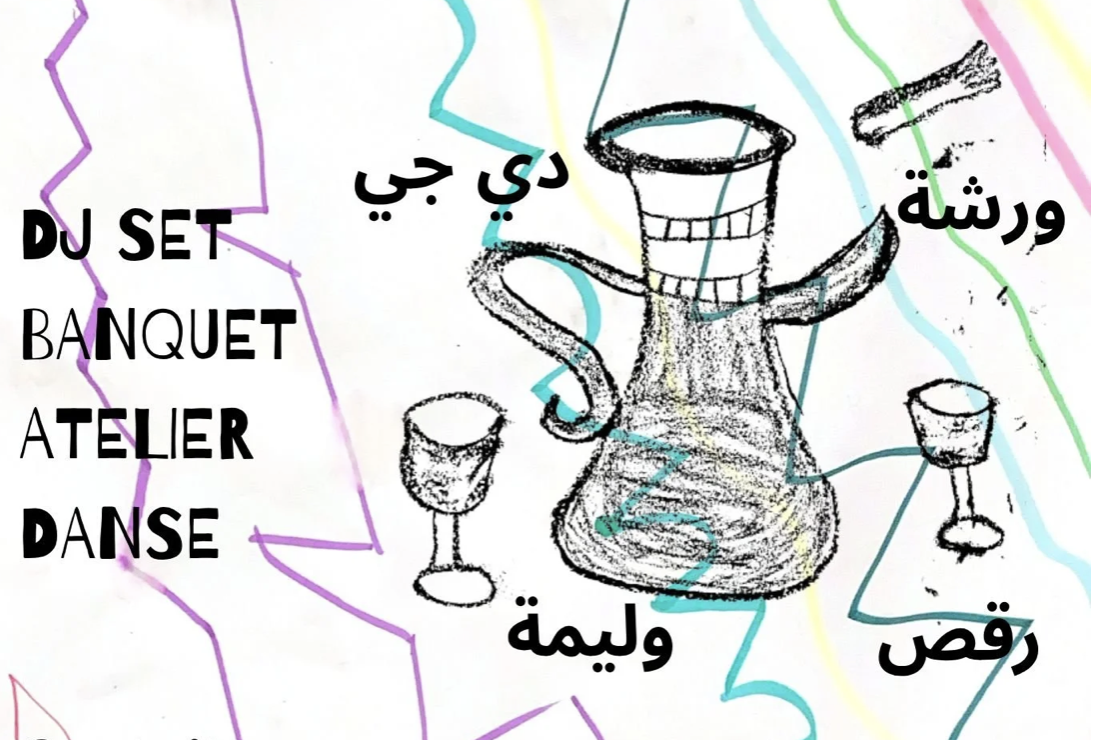 DJ SET
BANQUET
ATELIER
DANSE
دي جي
ورشة
وليمة
رقص